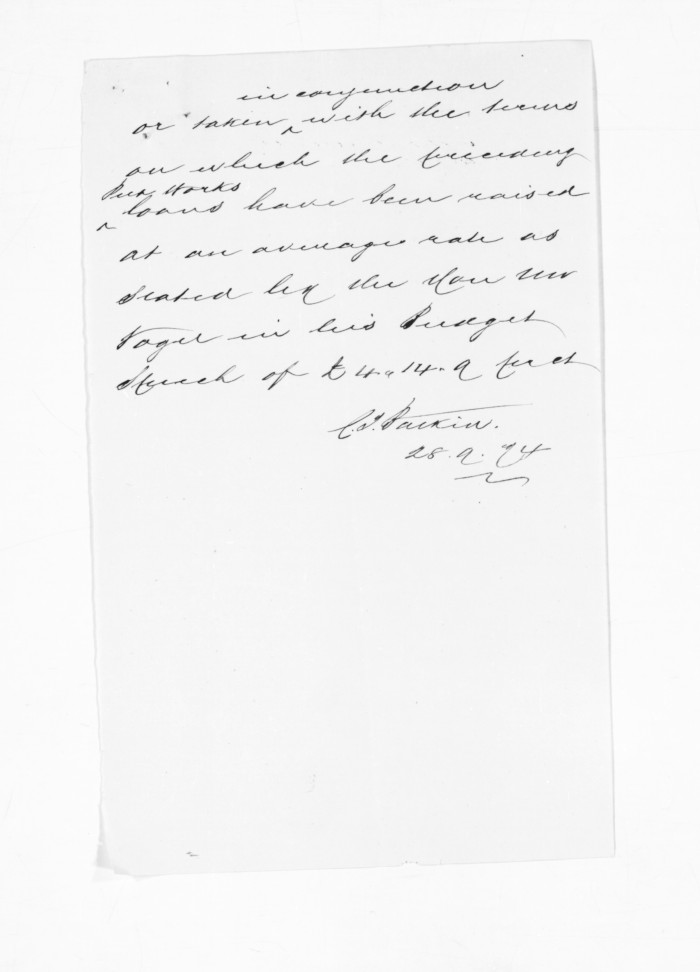 in conjunction
or taken ^ with the terms
on which the preceding
Pub Works
^ loans have been raised
at an average rate as
stated by the Hon Mr
Vogel in his Budget
Speech of £4.14.9 perct
28.9.74